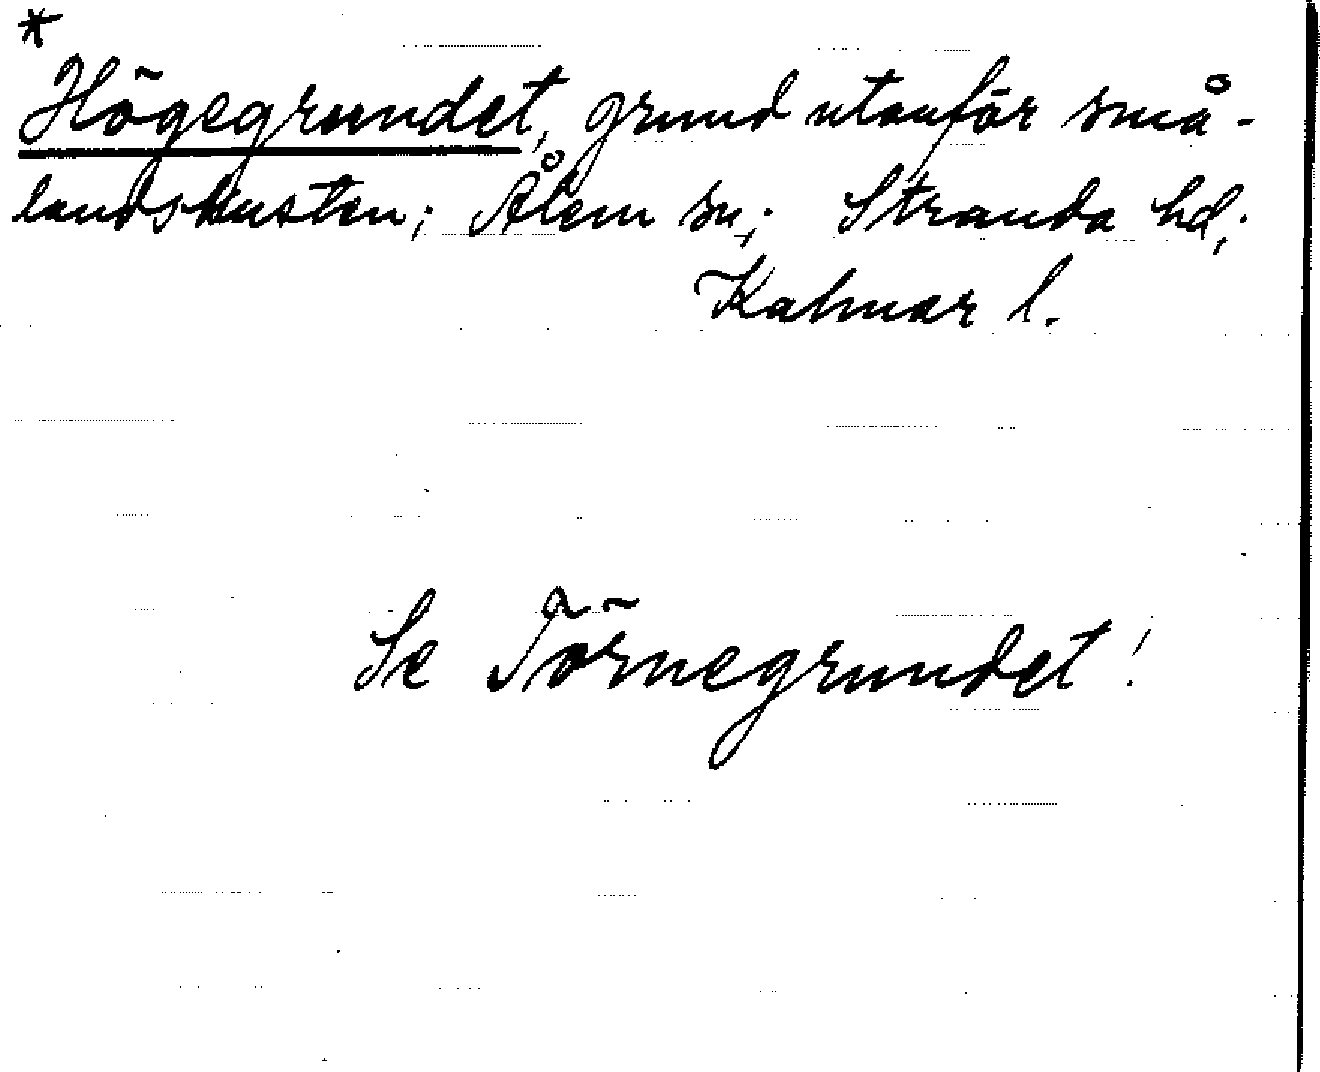 *
Högegrundet, grund utanför små-
landskusten; Ålem sn; Stranda hd;
Kalmar l.
Se Törnegrundet!